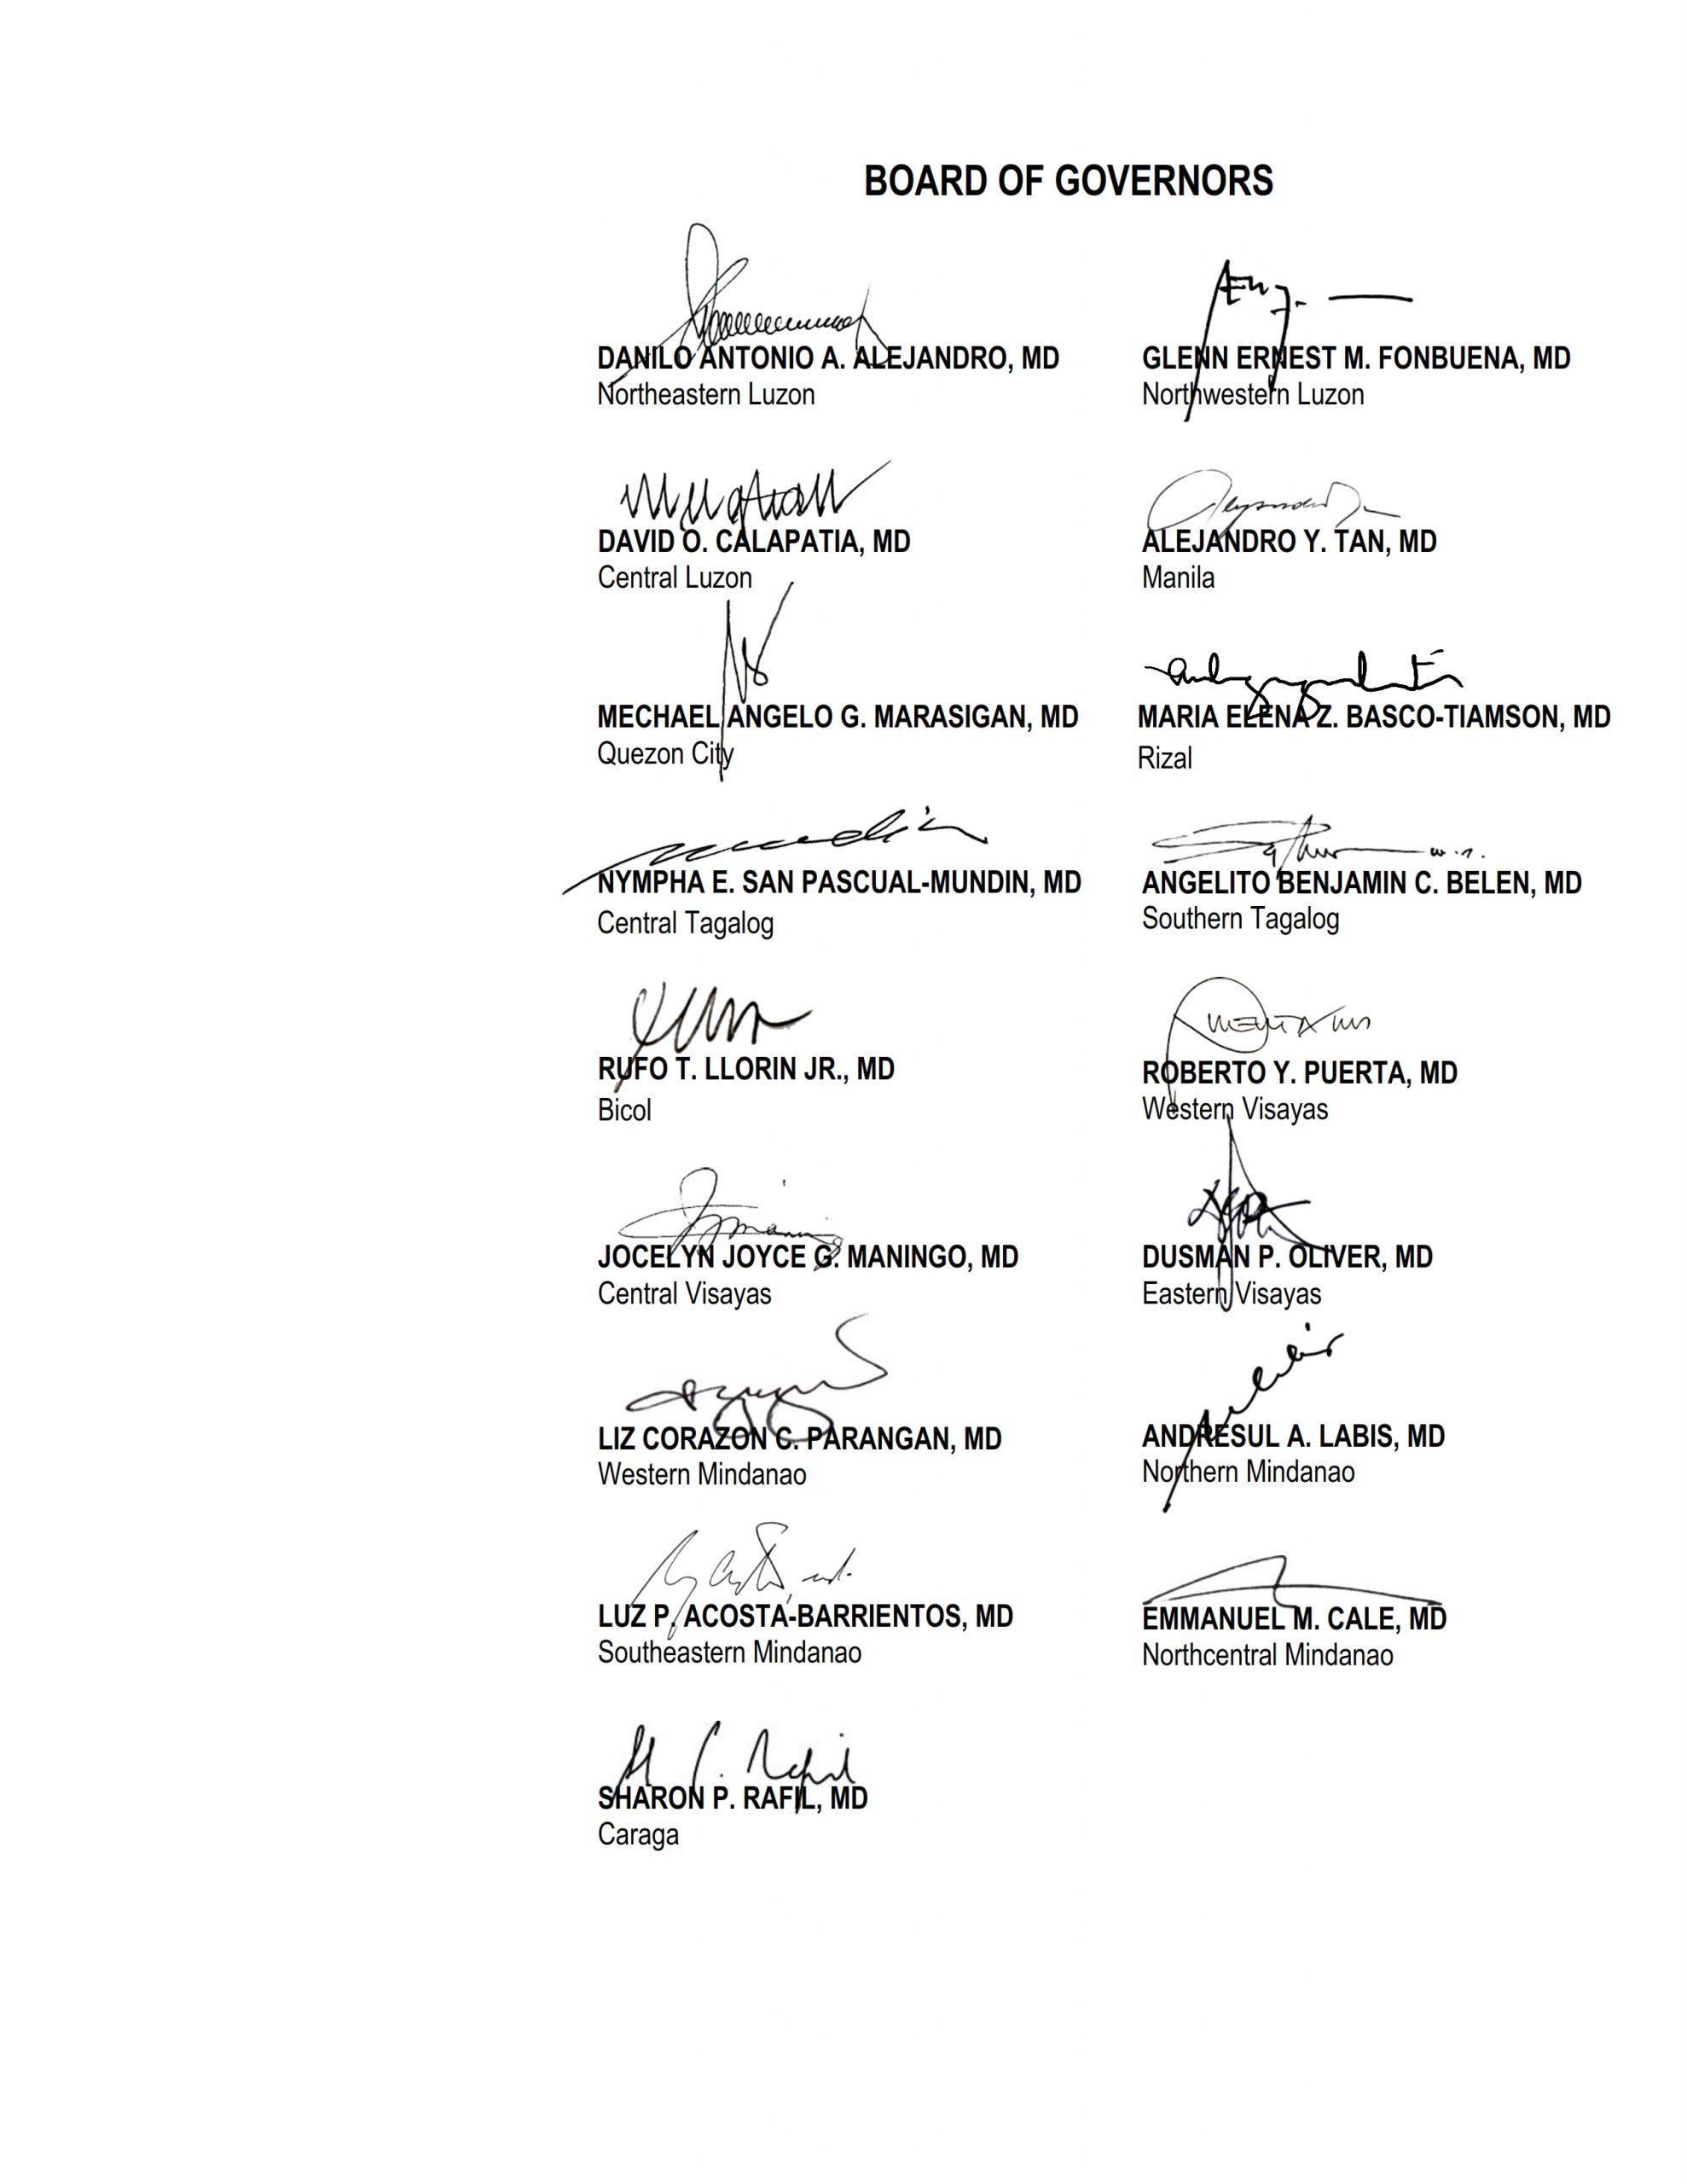 BOARD OF GOVERNORS
DANILO ANTONIO A. ALEJANDRO, MD
Northeastern Luzon
GLENN ERNEST M. FONBUENA, MD
Northwestern Luzon
DAVID O. CALAPATIA, MD
Central Luzon
ALEJANDRO Y. TAN, MD
Manila
MECHAEL ANGELO G. MARASIGAN, MD
Quezon City
MARIA ELENA Z. BASCO-TIAMSON, MD
Rizal
NYMPHA E. SAN PASCUAL-MUNDIN, MD
Central Tagalog
ANGELITO BENJAMIN C. BELEN, MD
Southern Tagalog
RUFO T. LLORIN JR., MD
Bicol
ROBERTO Y. PUERTA, MD
Western Visayas
JOCELYN JOYCE G. MANINGO, MD
Central Visayas
DUSMAN P. OLIVER, MD
Eastern Visayas
LIZ CORAZON C. PARANGAN, MD
Western Mindanao
ANDRESUL A. LABIS, MD
Northern Mindanao
LUZ P. ACOSTA-BARRIENTOS, MD
Southeastern Mindanao
EMMANUEL M. CALE, MD
Northcentral Mindanao
SHARON P. RAFIL, MD
Caraga